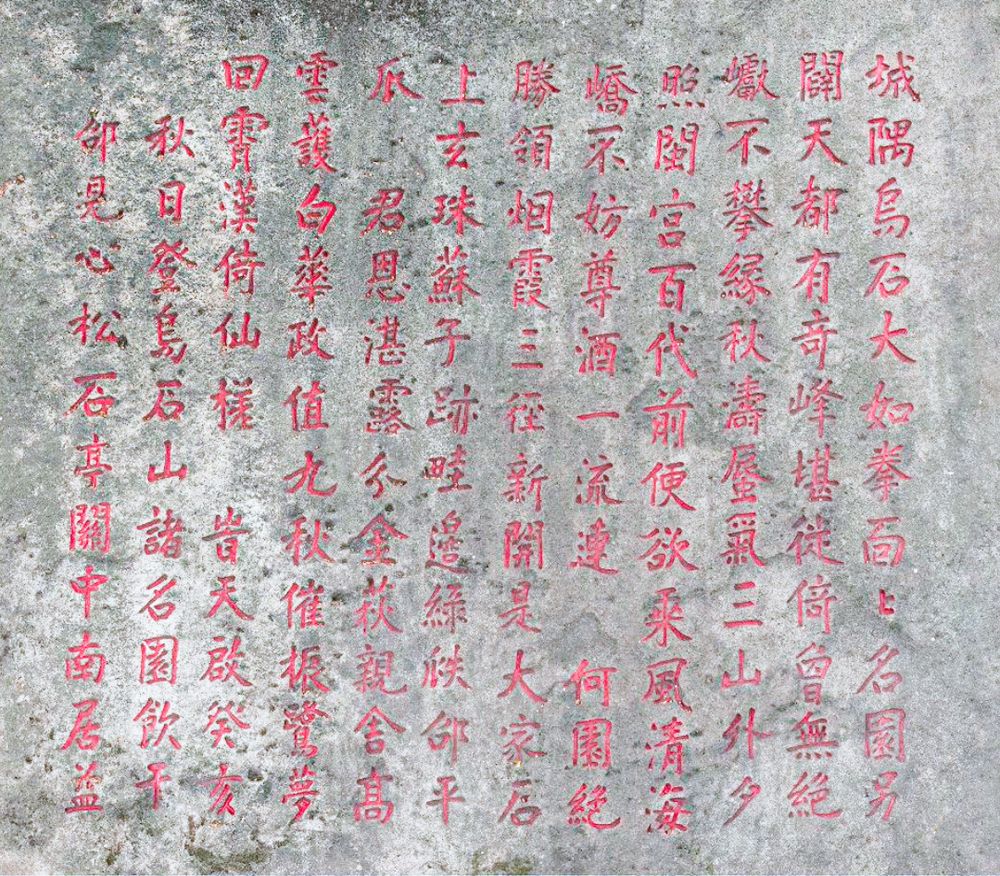 城隅烏石大如拳面々名園另
闢天都有奇峰堪徙倚曾無絕
巘不攀緣秋濤蜃氣三山外夕
照閩宮百代前便欲乘風清海
嶠不妨尊酒一流連 何園絕
勝領烟霞三徑新開是大家石
上玄珠蘇子跡畦邊綠瓞邵平
瓜 君恩湛露分金萩親舍高
雲護白華政值九秋催振鷺夢
回霄漢倚仙槎 旹天啟癸亥
秋日登烏石山諸名園飲于
邵見心松石亭關中南居益